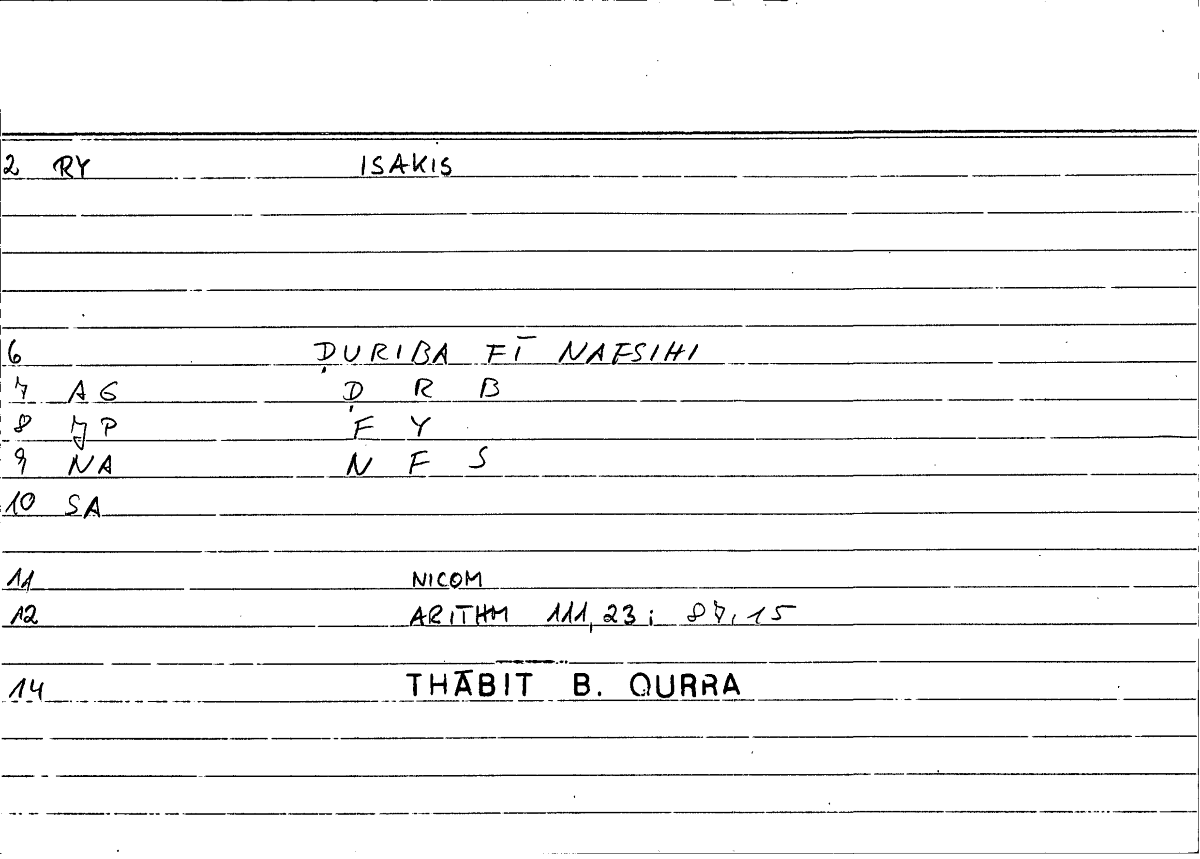 2 RY ISAKIS
6 ḌURIBA FĪ NAFSIHI
7 AG Ḍ R B
8 JP F Y
9 NA N F S
10 SA
11 NICOM
12 ARITHM 111,23; 87,15
14 THĀBIT B. QURRA